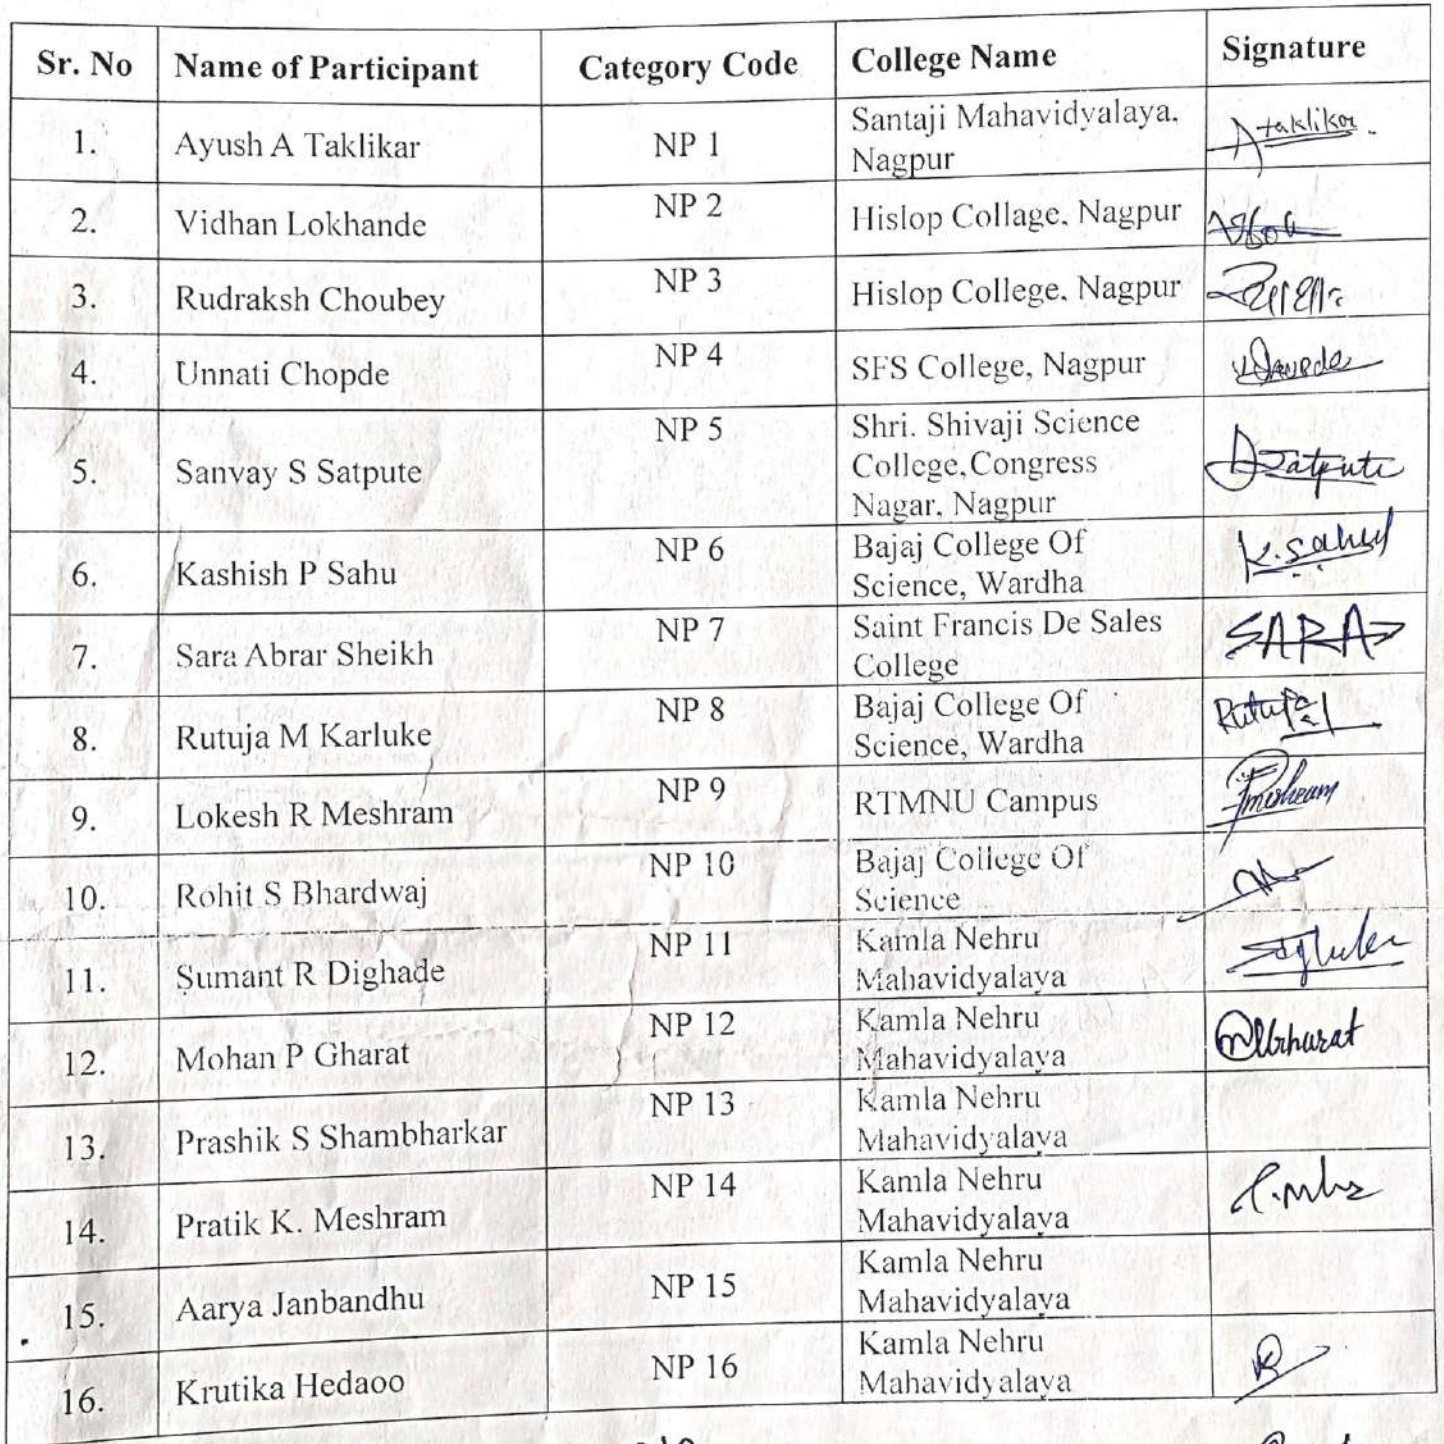 Sr. No Name of Participant Category Code College Name Signature
1. Ayush A Taklikar NP 1 Santaji Mahavidyalaya, Nagpur Ataklikar.
2. Vidhan Lokhande NP 2 Hislop Collage, Nagpur
3. Rudraksh Choubey NP 3 Hislop College, Nagpur
4. Unnati Chopde NP 4 SFS College, Nagpur
5. Sanvay S Satpute NP 5 Shri. Shivaji Science College,Congress Nagar, Nagpur Satpute
6. Kashish P Sahu NP 6 Bajaj College Of Science, Wardha K.Sahu
7. Sara Abrar Sheikh NP 7 Saint Francis De Sales College SARA
8. Rutuja M Karluke NP 8 Bajaj College Of Science, Wardha Rutuja
9. Lokesh R Meshram NP 9 RTMNU Campus Lmeshram
10. Rohit S Bhardwaj NP 10 Bajaj College Of Science
11. Sumant R Dighade NP 11 Kamla Nehru Mahavidyalaya
12. Mohan P Gharat NP 12 Kamla Nehru Mahavidyalaya
13. Prashik S Shambharkar NP 13 Kamla Nehru Mahavidyalaya
14. Pratik K. Meshram NP 14 Kamla Nehru Mahavidyalaya
15. Aarya Janbandhu NP 15 Kamla Nehru Mahavidyalaya
16. Krutika Hedaoo NP 16 Kamla Nehru Mahavidyalaya